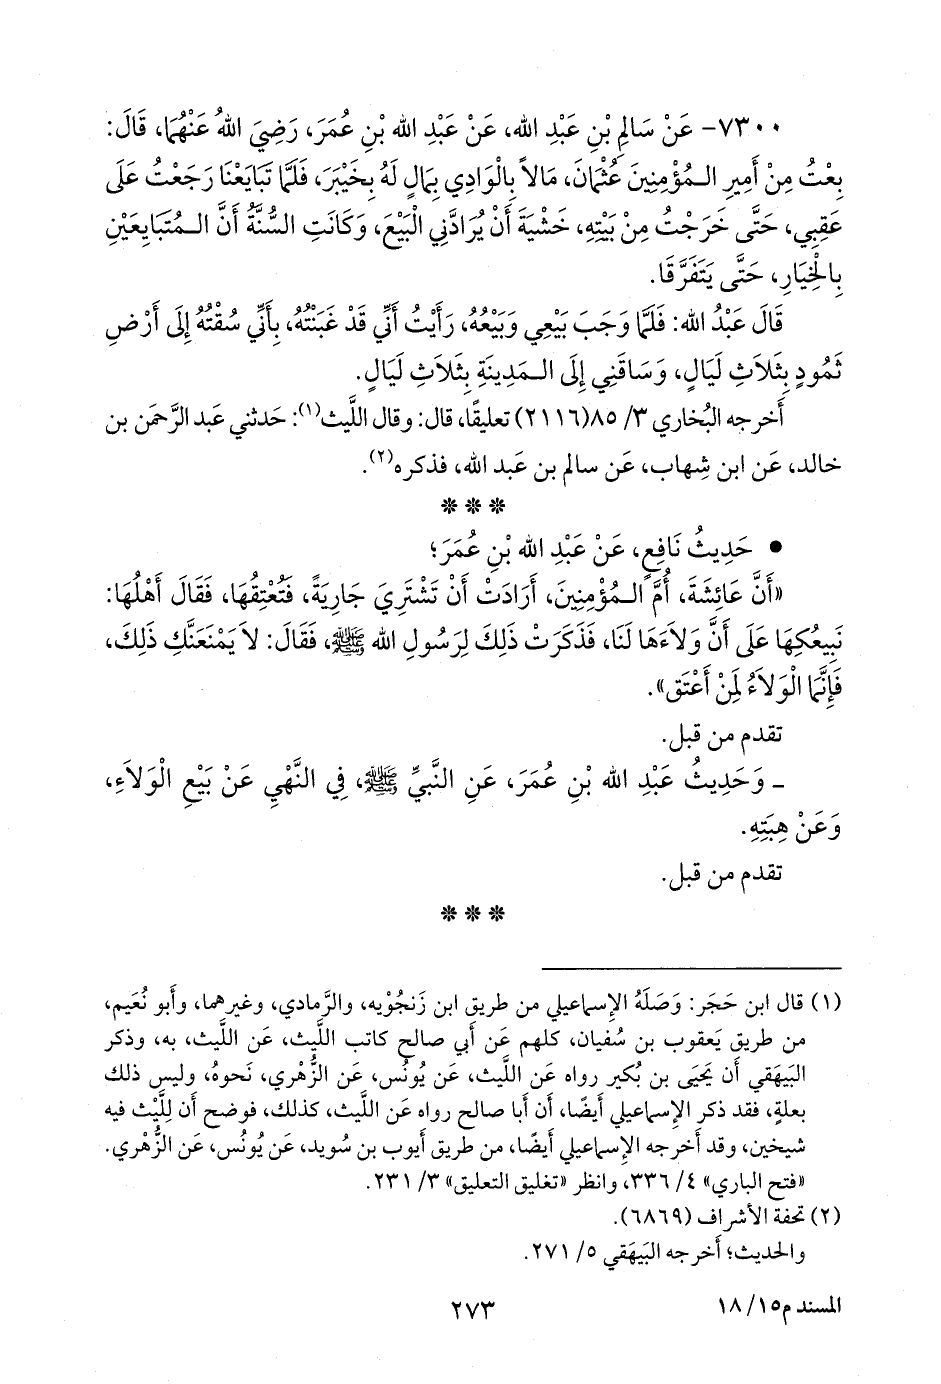 ٧٣٠٠- عَنْ سَالِمِ بْنِ عَبْدِ الله، عَنْ عَبْدِ الله بْنِ عُمَرَ، رَضِيَ اللهُ عَنْهُمَا، قَالَ:
بِعْتُ مِنْ أَمِيرِ الْـمُؤْمِنِينَ عُثْمَانَ، مَالاً بِالْوَادِي بِمَالٍ لَهُ بِخَيْبَرَ، فَلَمَّا تَبَايَعْنَا رَجَعْتُ عَلَى
عَقِبِي، حَتَّى خَرَجْتُ مِنْ بَيْتِهِ، خَشْيَةَ أَنْ يُرَادَّنِي الْبَيْعَ، وَكَانَتِ السُّنَّةُ أَنَّ الْـمُتَبَايِعَيْنِ
بِالْخِيَارِ، حَتَّى يَتَفَرَّقَا.
قَالَ عَبْدُ الله: فَلَمَّا وَجَبَ بَيْعِي وَبَيْعُهُ، رَأَيْتُ أَنِّي قَدْ غَبَنْتُهُ، بِأَنِّي سُقْتُهُ إِلَى أَرْضِ
ثَمُودٍ بِثَلَاثِ لَيَالٍ، وَسَاقَنِي إِلَى الْـمَدِينَةِ بِثَلَاثِ لَيَالٍ.
أَخرجه البُخاري ٣/ ٨٥(٢١١٦) تعليقًا، قال: وقال اللَّيث(١): حَدثني عَبد الرَّحمَن بن
خالد، عَن ابن شِهاب، عَن سالم بن عَبد الله، فذكره(٢).
* * *
• حَدِيثُ نَافِعٍ، عَنْ عَبْدِ الله بْنِ عُمَرَ؛
«أَنَّ عَائِشَةَ، أُمَّ الْـمُؤْمِنِينَ، أَرَادَتْ أَنْ تَشْتَرِيَ جَارِيَةً، فَتُعْتِقُهَا، فَقَالَ أَهْلُهَا:
نَبِيعُكِهَا عَلَى أَنَّ وَلاَءَهَا لَنَا، فَذَكَرَتْ ذَلِكَ لِرَسُولِ الله ﷺ، فَقَالَ: لاَ يَمْنَعَنَّكِ ذَلِكَ،
فَإِنَّمَا الْوَلاَءُ لِمَنْ أَعْتَقَ».
تقدم من قبل.
ـ وَحَدِيثُ عَبْدِ الله بْنِ عُمَرَ، عَنِ النَّبِيِّ ﷺ، فِي النَّهْيِ عَنْ بَيْعِ الْوَلاَءِ،
وَعَنْ هِبَتِهِ.
تقدم من قبل.
* * *
(١) قال ابن حَجَر: وَصَلَهُ الإِسماعيلي من طريق ابن زَنجُوْيه، والرَّمادي، وغيرهما، وأَبو نُعَيم،
من طريق يَعقوب بن سُفيان، كلهم عَن أَبي صالح كاتب اللَّيث، عَن اللَّيث، به، وذكر
البَيهَقي أَن يَحيَى بن بُكير رواه عَن اللَّيث، عَن يُونُس، عَن الزُّهْري، نَحوهُ، وليس ذلك
بعلةٍ، فقد ذكر الإِسماعيلي أَيضًا، أَن أَبا صالح رواه عَن اللَّيث، كذلك، فوضح أَن لِلَّيْث فيه
شيخين، وقد أَخرجه الإِسماعيلي أَيضًا، من طريق أَيوب بن سُويد، عَن يُونُس، عَن الزُّهْري.
«فتح الباري» ٤/ ٣٣٦، وانظر «تغليق التعليق» ٣/ ٢٣١.
(٢) تحفة الأشراف (٦٨٦٩).
والحديث؛ أَخرجه البَيهَقي ٥/ ٢٧١.
المسند م١٥/ ١٨
٢٧٣